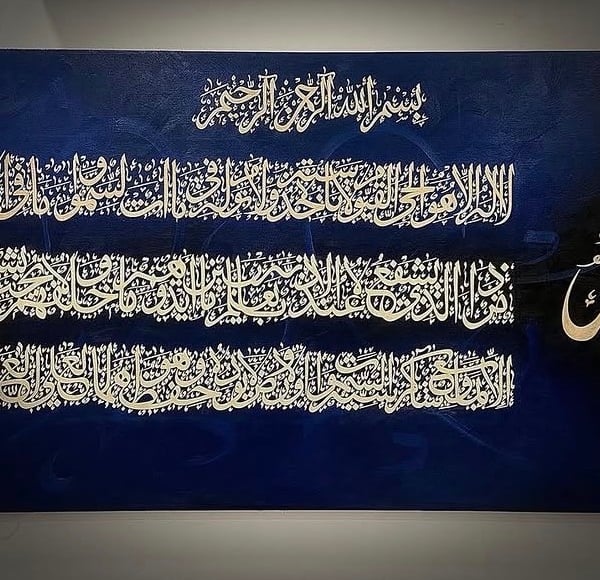 بسم الله الرحمن الرحيم
لا إله إلا هو الحي القيوم لا تأخذه سنة ولا نوم له ما في السموات وما في
من ذا الذي يشفع عنده إلا بإذنه يعلم ما بين أيديهم وما خلفهم
إلا بما شاء وسع كرسيه السموات والأرض ولا يؤوده حفظهما وهو العلي